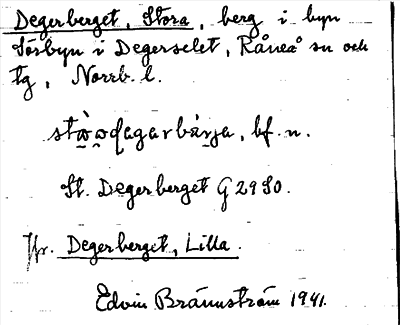 Degerberget, Stora, berg i byn
Sörbyn i Degerselet, Råneå sn och
tg, Norrb. l.
bf. n.
St. Degerberget G 2980.
Jfr. Degerberget, Lilla.
Edvin Brännström 1941.